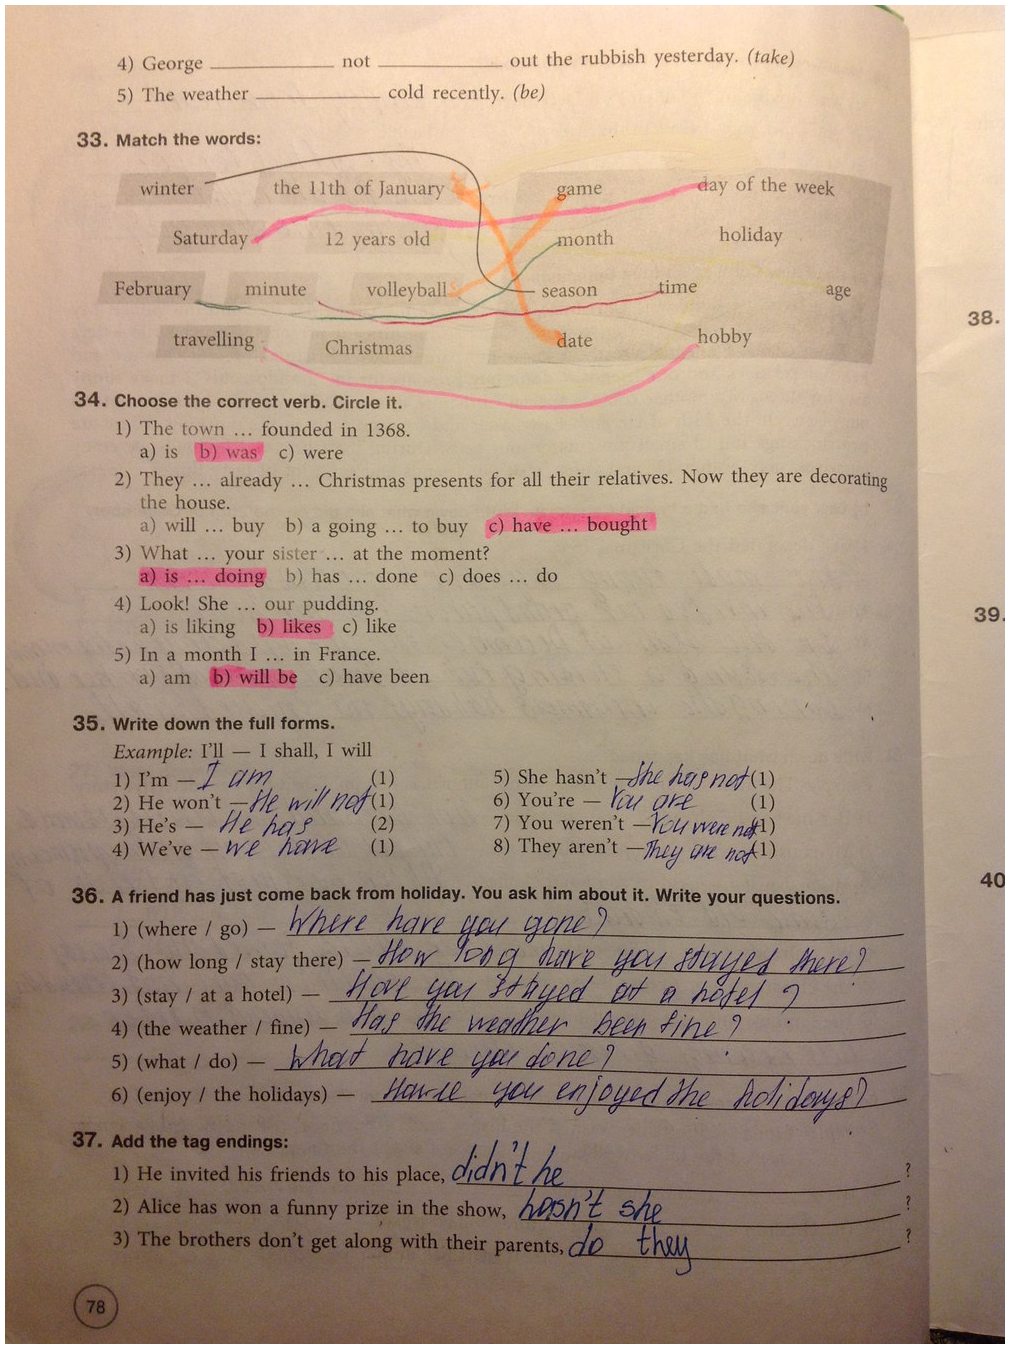 4) George ____________ not ____________ out the rubbish yesterday. (take)
5) The weather ____________ cold recently. (be)
33. Match the words:
winter the 11th of January game day of the week
Saturday 12 years old month holiday
February minute volleyball season time age
travelling Christmas date hobby
38.
34. Choose the correct verb. Circle it.
1) The town ... founded in 1368.
a) is b) was c) were
2) They ... already ... Christmas presents for all their relatives. Now they are decorating
the house.
a) will ... buy b) a going ... to buy c) have ... bought
3) What ... your sister ... at the moment?
a) is ... doing b) has ... done c) does ... do
4) Look! She ... our pudding.
39.
a) is liking b) likes c) like
5) In a month I ... in France.
a) am b) will be c) have been
35. Write down the full forms.
Example: I'll — I shall, I will
1) I'm — I am (1) 5) She hasn't — She has not (1)
2) He won't — He will not (1) 6) You're — You are (1)
3) He's — He has (2) 7) You weren't — You were not (1)
4) We've — We have (1) 8) They aren't — They are not (1)
40
36. A friend has just come back from holiday. You ask him about it. Write your questions.
1) (where / go) — Where have you gone?
2) (how long / stay there) — How long have you stayed there?
3) (stay / at a hotel) — Have you stayed at a hotel ?
4) (the weather / fine) — Has the weather been fine?
5) (what / do) — What have you done?
6) (enjoy / the holidays) — Have you enjoyed the holidays?
37. Add the tag endings:
1) He invited his friends to his place, didn't he ?
2) Alice has won a funny prize in the show, hasn't she ?
3) The brothers don't get along with their parents, do they ?
78